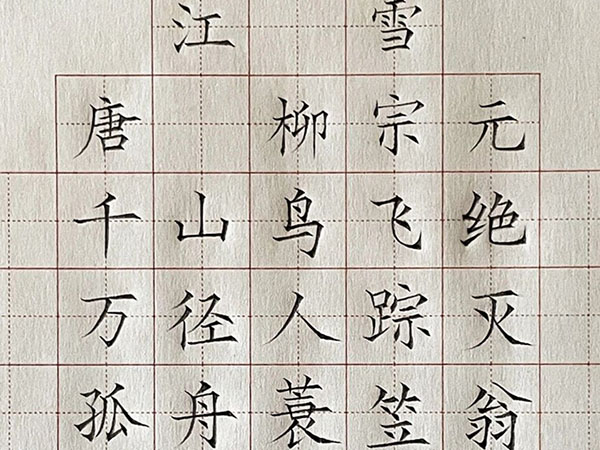 江雪
唐 柳宗元
千山鸟飞绝
万径人踪灭
孤舟蓑笠翁